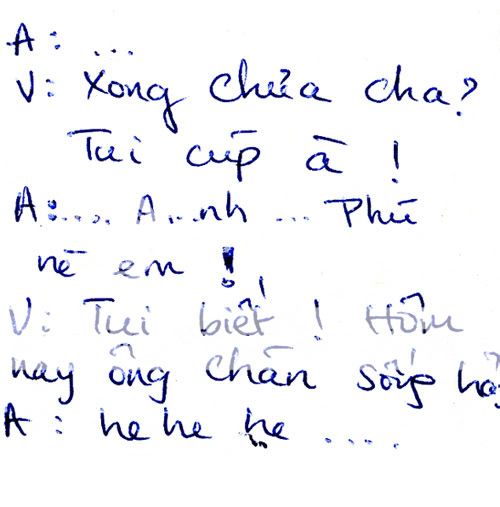 A: ...
V: Xong chưa cha?
Tui cúp à !
A:.... A...nh ... Phú
nè em !
V: Tui biết ! Hôm
nay ông chán sống hả
A : he he he ....